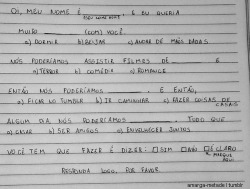 OI, MEU NOME É __________, E EU QUERIA
MUITO __________ (COM) VOCÊ.
a) DORMIR b) BEIJAR c) ANDAR DE MÃOS DADAS
NÓS PODERÍAMOS ASSISTIR FILMES DE __________ E
a) TERROR b) COMÉDIA c) ROMANCE
ENTÃO NÓS PODERÍAMOS __________, E ENTÃO,
a) FICAR NO TUMBLR b) IR CAMINHAR c) FAZER COISAS DE
CASAIS
ALGUM DIA NÓS PODERÍAMOS __________. TUDO QUE
a) CASAR b) SER AMIGOS c) ENVELHECER JUNTOS
VOCÊ TEM QUE FAZER É DIZER: □ SIM □ NÃO □ CLARO
MARQUE
AQUI.
RESPONDA LOGO, POR FAVOR
amarga-metade | tumblr